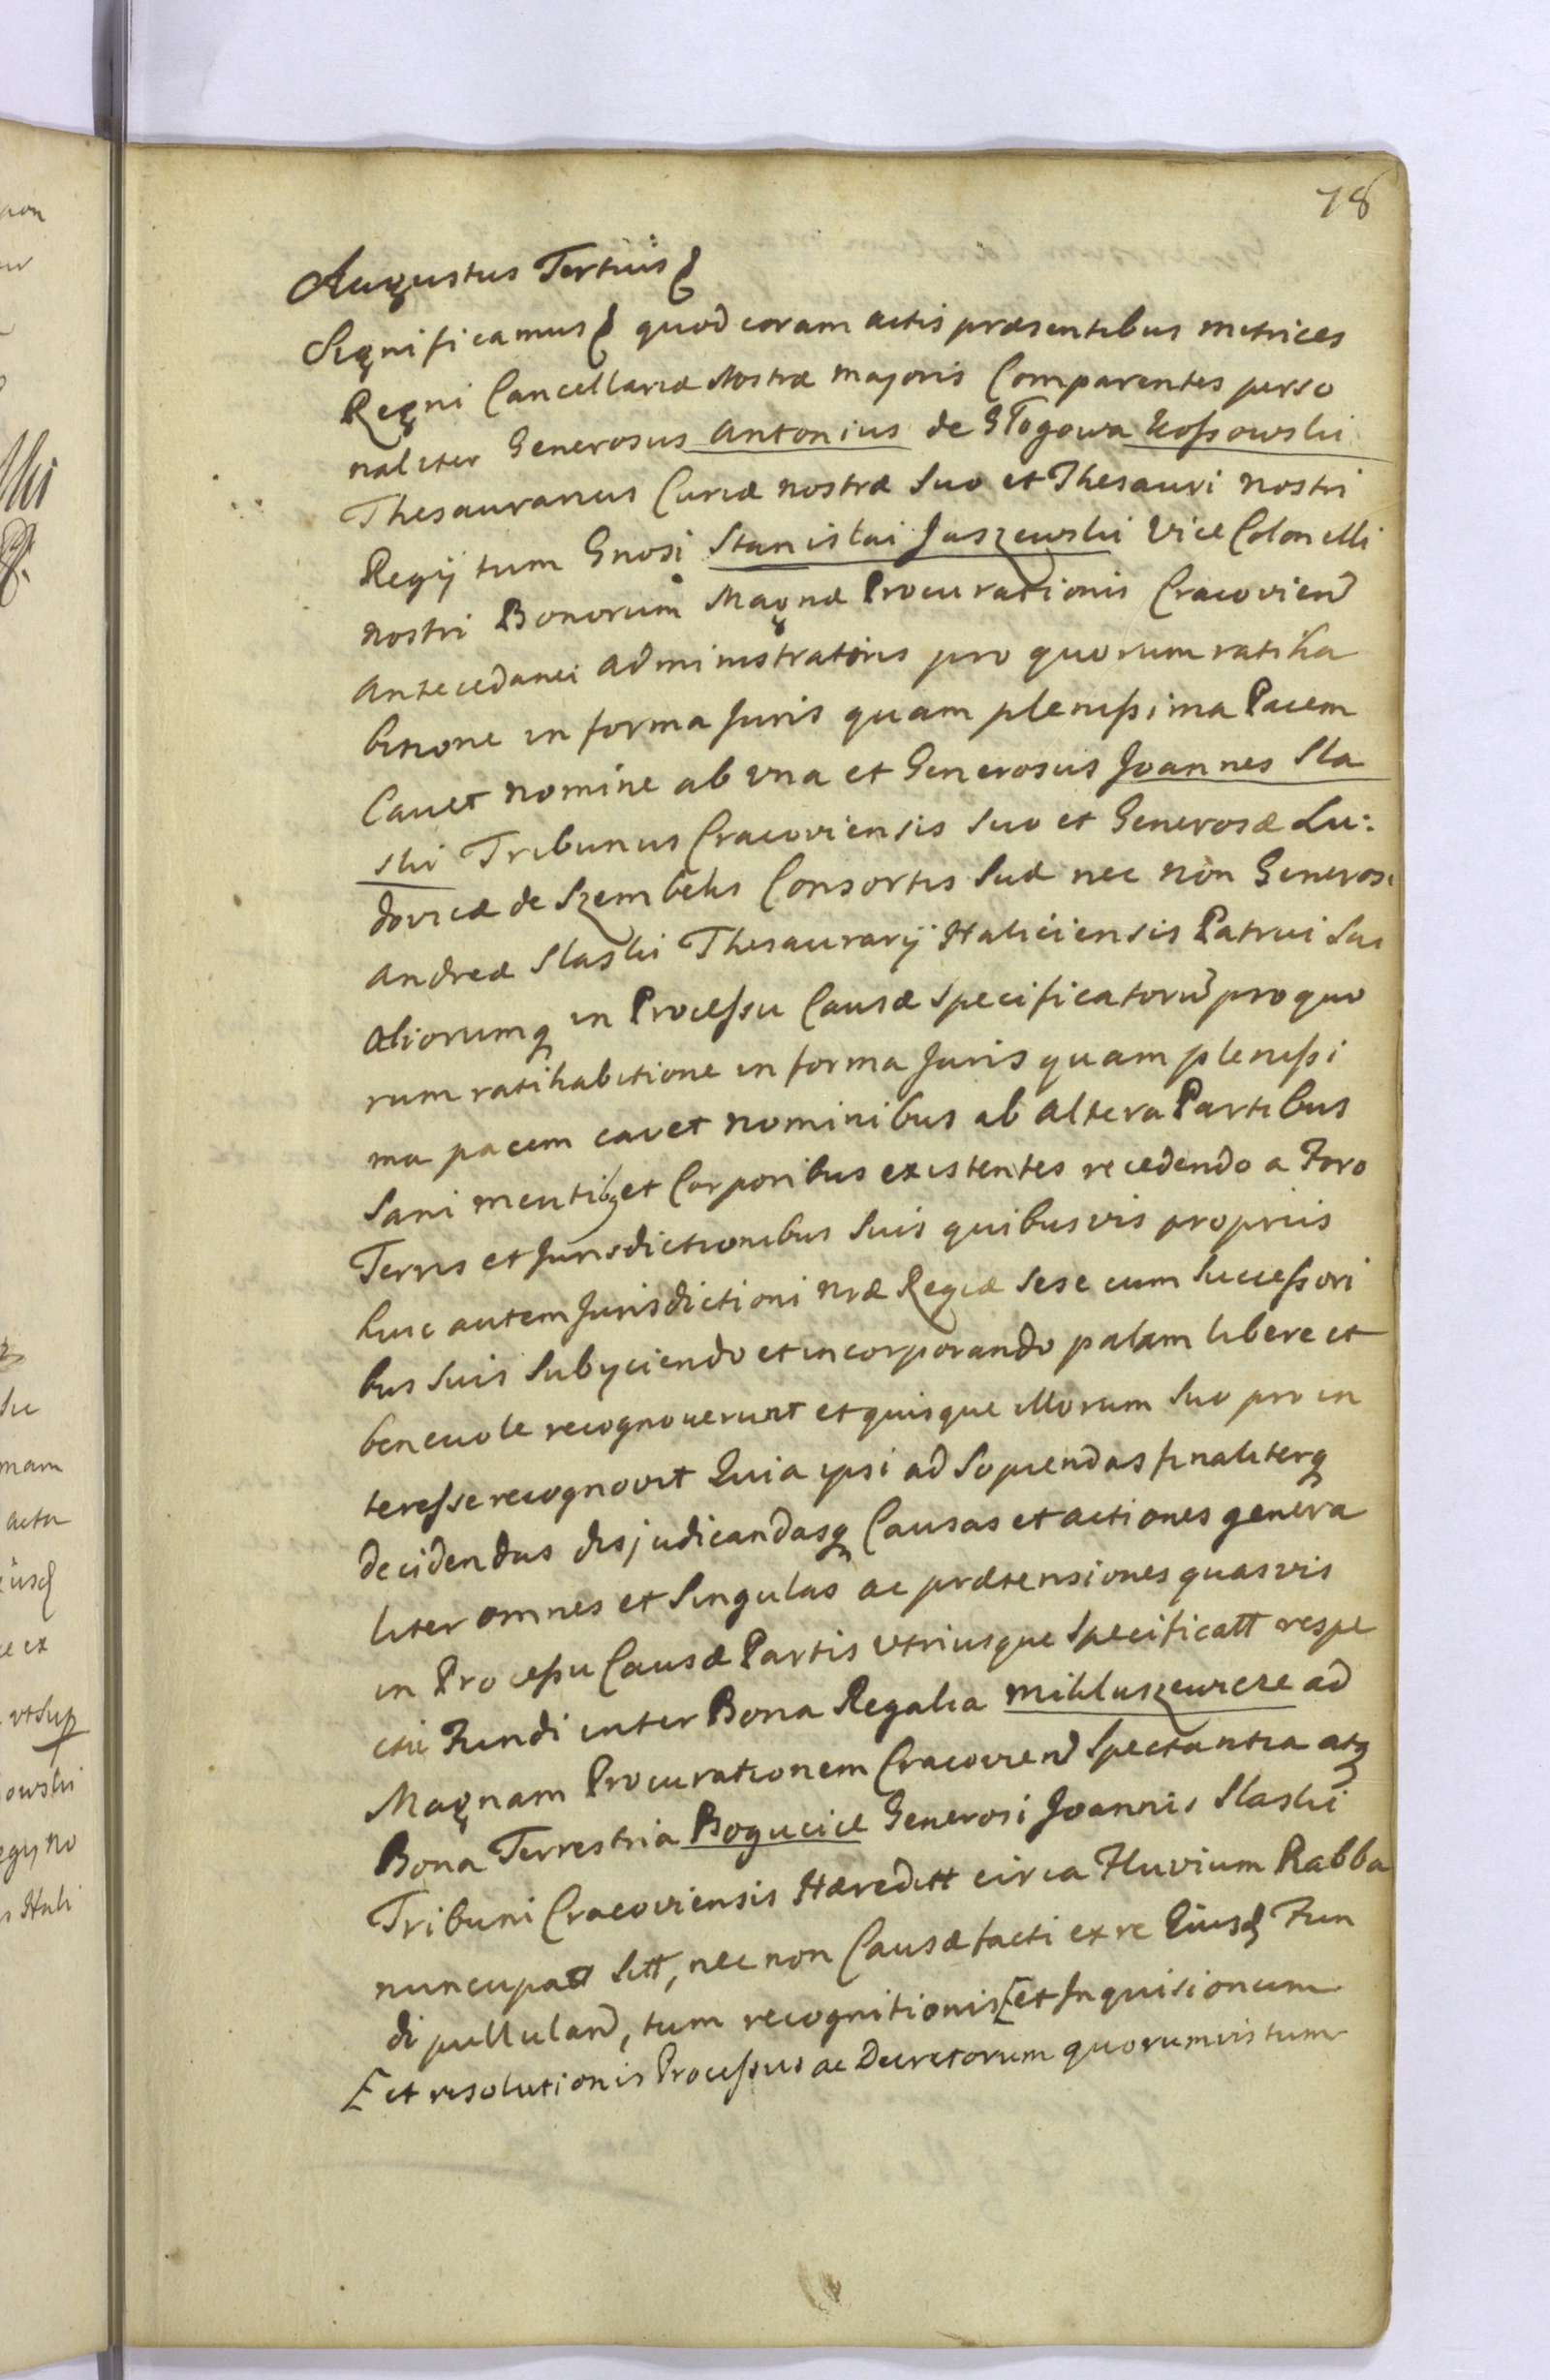 78
Augustus Tertius
Significamus quod coram actis præsentibus metrices
Regni Cancellariæ Nostræ majoris Comparentes perso
naliter Generosus Antonius de Głogowa Kossowski
Thesaurarius Curiæ nostræ suo et Thesauri nostri
Regij tum Gnosi Stanislai Jaszewski Vice Colonelli
nostri Bonorum Magnæ Procurationis Cracovien
antecedanei administratoris pro quorum ratiha
bitione in forma Juris quam plenissima Pacem
Cauet nomine ab una et Generosus Joannes Sla
ski Tribunus Cracoviensis suo et Generosæ Lu:
dovicæ de Szembeks Consortis suæ nec non Generosi
Andreæ Slaski Thesaurarij Haliciensis Patrui sui
aliorumq in Processu Causæ specificatorum pro quo
rum ratihabitione in forma Juris quam plenissi
ma pacem cavet nominibus ab altera Partibus
Sani mentibq et Corporibus existentes recedendo a Foro
Terris et Jurisdictionibus suis quibusvis propriis
huic autem Jurisdictioni nræ Regiæ sese cum Successori
bus suis subyciendo et incorporando palam libere et
beneuole recognouerunt et quisque illorum suo pro in
teresse recognovit Quia ipsi ad sopiendas finaliterq
decidendas disjudicandasq Causas et actiones genera
liter omnes et singulas ac prætensiones quasvis
in Processu Causæ Partis utriusque specificatt respe
ctu Fundi inter Bona Regalia Mikluszewicze ad
Magnam Procurationem Cracovien spectantia atq
Bona Terrestria Bogucice Generosi Joannis Slaski
Tribuni Cracoviensis Hæreditt circa Fluvium Rabba
nuncupatt sitt, nec non Causæ facti ex re Eiusd Fun
di pullulan, tum recognitionis [et Inquisicionum
[et resolutionis Processus ac Decretorum quorumvis tum